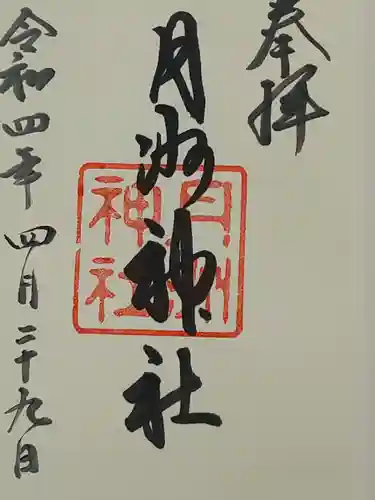 奉拝
月洲神社
月洲
神社
令和四年 四月二十九日